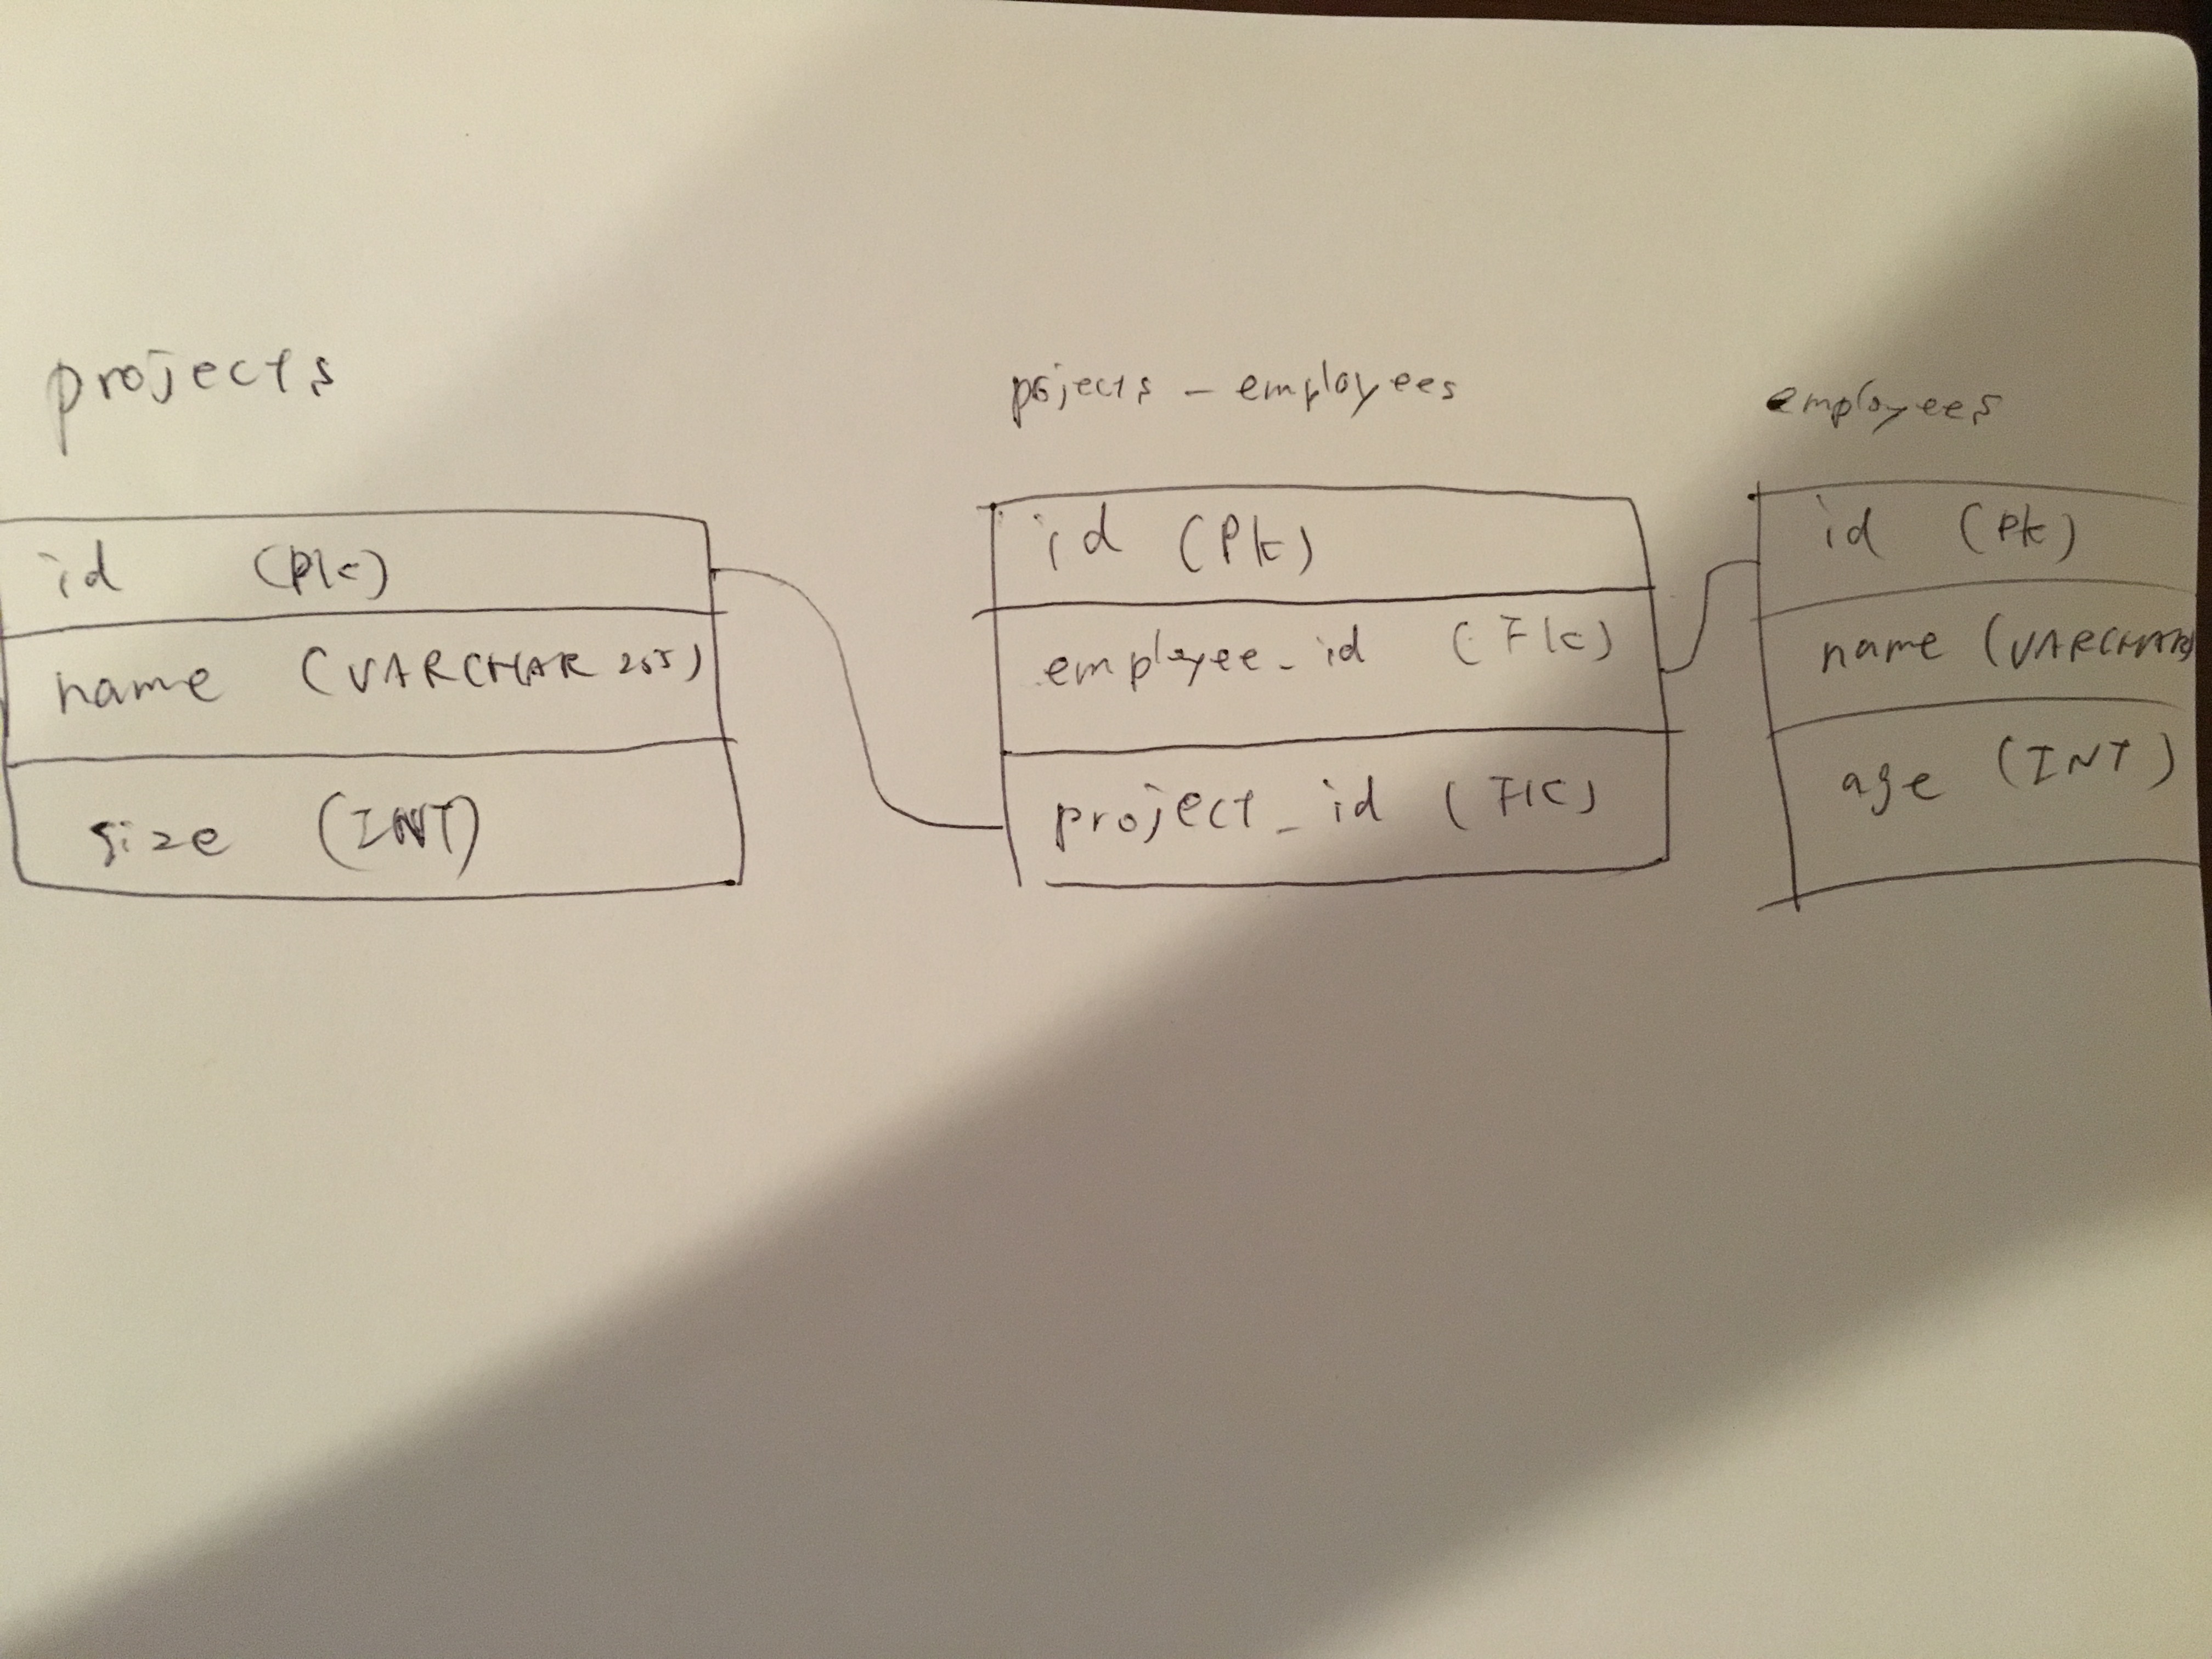 projects
id (PK)
name (VARCHAR 255)
size (INT)
projects_employees
id (PK)
employee_id (FK)
project_id (FK)
employees
id (PK)
name (VARCHAR)
age (INT)